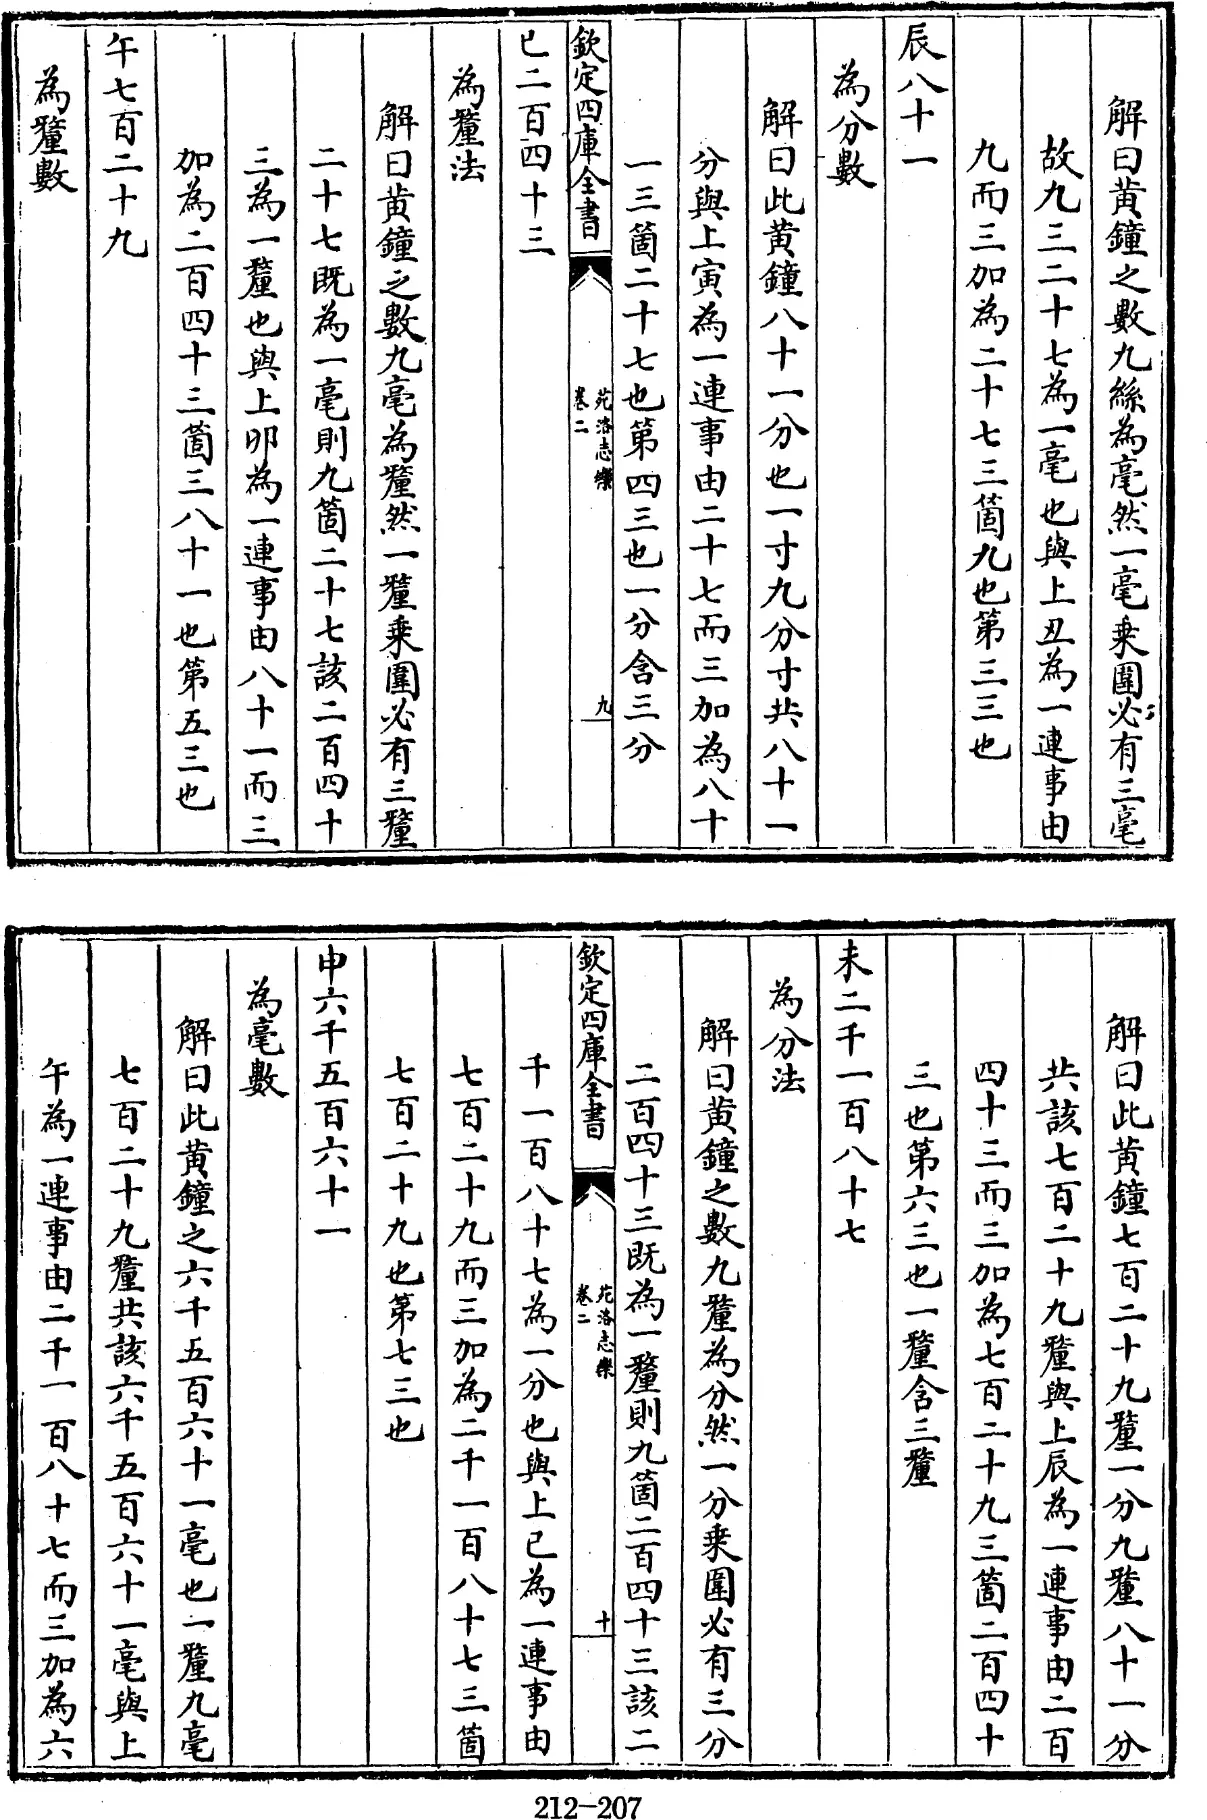 解曰黄鐘之數九絲為毫然一毫乗圍必有三毫
故九三二十七為一毫也與上丑為一連事由
九而三加為二十七三箇九也第三三也
辰八十一
為分數
解曰此黄鐘八十一分也一寸九分寸共八十一
分與上寅為一連事由二十七而三加為八十
一三箇二十七也第四三也一分含三分
欽定四庫全書
苑洛志樂
卷二
九
巳二百四十三
為釐法
解曰黄鐘之數九毫為釐然一釐乗圍必有三釐
二十七既為一毫則九箇二十七該二百四十
三為一釐也與上卯為一連事由八十一而三
加為二百四十三箇三八十一也第五三也
午七百二十九
為釐數
解曰此黄鐘七百二十九釐一分九釐八十一分
共該七百二十九釐與上辰為一連事由二百
四十三而三加為七百二十九三箇二百四十
三也第六三也一釐含三釐
未二千一百八十七
為分法
解曰黄鐘之數九釐為分然一分乗圍必有三分
二百四十三既為一釐則九箇二百四十三該二
欽定四庫全書
苑洛志樂
卷二
十
千一百八十七為一分也與上巳為一連事由
七百二十九而三加為二千一百八十七三箇
七百二十九也第七三也
申六千五百六十一
為毫數
解曰此黄鐘之六千五百六十一毫也一釐九毫
七百二十九釐共該六千五百六十一毫與上
午為一連事由二千一百八十七而三加為六
212-207